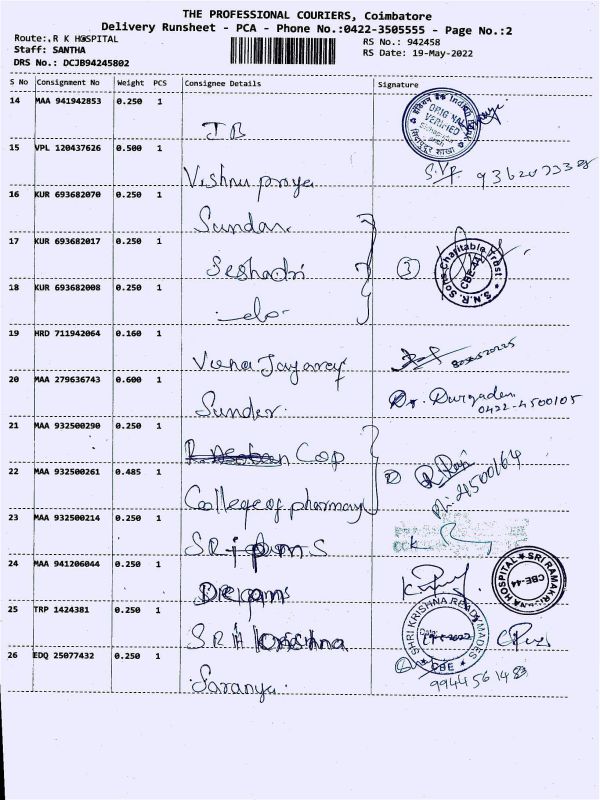 THE PROFESSIONAL COURIERS, Coimbatore
Delivery Runsheet - PCA - Phone No.:0422-3505555 - Page No.:2
Route:.R K HOSPITAL
RS No.: 942458
Staff: SANTHA
RS Date: 19-May-2022
DRS No.: DCJB94245802
S No Consignment No Weight PCS Consignee Details Signature
14 MAA 941942853 0.250 1
JB
ORIGINAL VERIFIED
15 VPL 120437626 0.500 1
Vishnu priya
16 KUR 693682070 0.250 1
Sundar.
17 KUR 693682017 0.250 1
Seshadri
3
S.N.R. Sons Charitable Trust
CBE-44
18 KUR 693682008 0.250 1
-do-
19 HRD 711942064 0.160 1
Veena Jayaraj
20 MAA 279636743 0.600 1
Sunder.
Dr. Durgadevi
0422-4500105
21 MAA 932500290 0.250 1
Cop
22 MAA 932500261 0.485 1
College of pharmacy
R. Raj
Ph: 4500164
23 MAA 932500214 0.250 1
24 MAA 941206044 0.250 1
SRI RAMAKRISHNA HOSPITAL
CBE-44
25 TRP 1424381 0.250 1
SRH krishna
SHRI KRISHNA READYMADES
CBE
26 EDQ 25077432 0.250 1
Saranya.